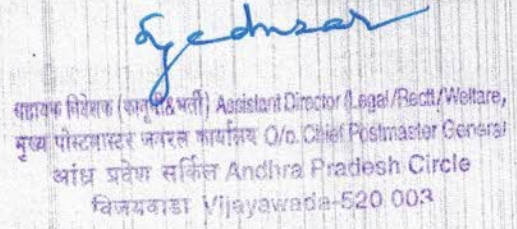 सहायक निदेशक (कानूनी&भर्ती) Assistant Director (Legal/Rectt/Welfare,
मुख्य पोस्टमास्टर जनरल कार्यालय O/o. Chief Postmaster General
आंध्र प्रदेश सर्किल Andhra Pradesh Circle
विजयवाडा Vijayawada-520 003